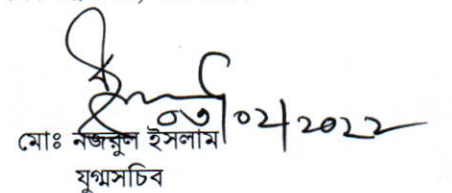 ০৩/০২/২০২২
মোঃ নজরুল ইসলাম
যুগ্মসচিব